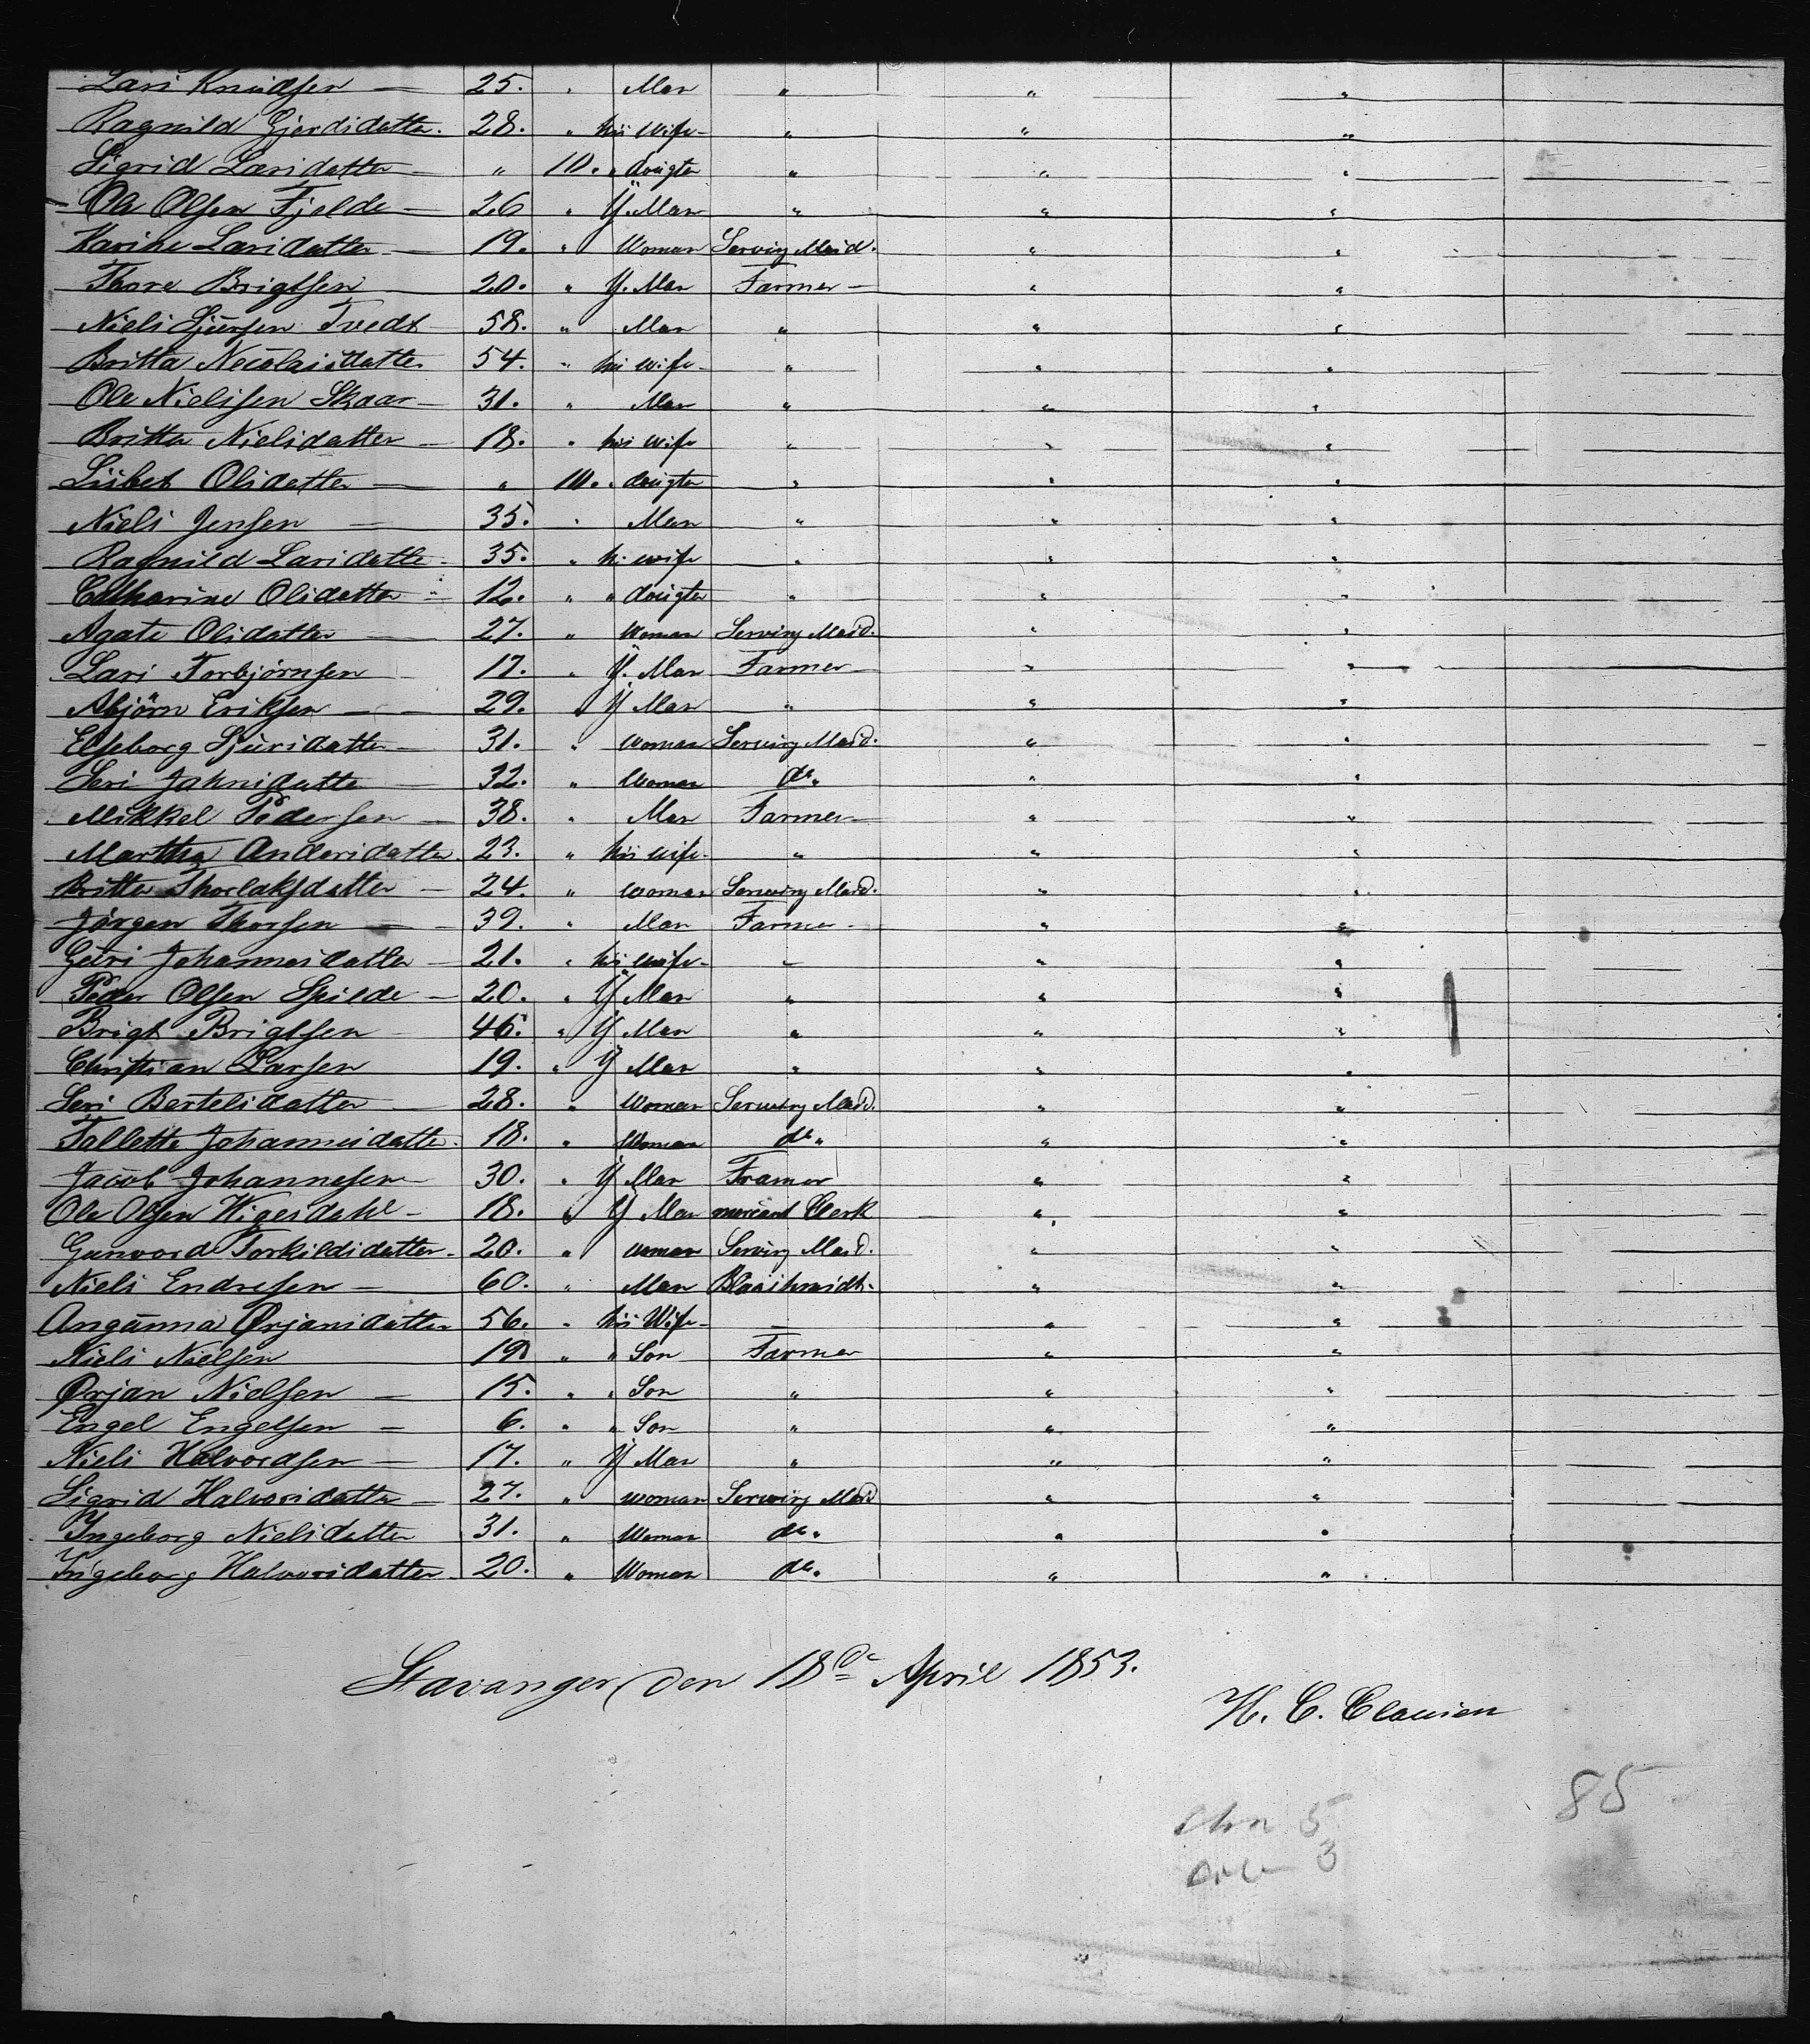 Lars Knudsen — 25. " Man " " "
Ragnild Gjerdsdatter. 28. " his Wife — " " "
Sigrid Larsdatter — " 10. " dougter " " "
Ole Olsen Fjelde — 26 " Y. Man " " "
Karine Larsdatter — 19. " Woman Serving Maid. " "
Thore Brigtsen — 20. " Y. Man Farmer — " "
Niels Sjursen Tvedt 58. " Man " " "
Britta Necolaisdatter 54. " his wife — " " "
Ole Nielssen Skaar — 31. " Man " " "
Britta Nielsdatter — 18. " his wife " " "
Lisbet Olsdatter — " 10. " dougter " " "
Niels Jensen — 35. " Man " " "
Ragnild Larsdatte — 35. " hs wife " " "
Catharine Olsdatter " 12. " " dougter " " "
Agate Olsdatter — 27. " Woman Serving Maid. " "
Lars Torbjörnsen 17. " Y. Man Farmer — " "
Abjörn Eriksen — 29. " Y Man " " "
Elseborg Sjursdatter — 31. " woman Serving Maid. " "
Seri Jahnsdatte — 32. " Woman do. " "
Mikkel Pedersen — 38. " Man Farmer — " "
Martha Andersdatter. 23. " his wife — " " "
Britta Thorlaksdatter — 24. " woman Serving Maid. " "
Jörgen Thorsen — 39. " Man Farmer — " "
Guri Johannesdatter — 21. " his wife — " " "
Peder Olsen Spilde — 20. " Y Man " " "
Brigt Brigtsen 46. " Y Man " " "
Christian Larsen 19. " Y Man " " "
Seri Bertelsdatter — 28. " Woman Serving Maid. " "
Tallette Johannesdatter. 18. " Woman do. " "
Jacob Johannesen 30. " Y Man Framer " "
Ole Olsen Wigesdahl — 18. " Y Man mercant Clerk " "
Gunvord Torkildsdatter. 20. " woman Serving Maid. " "
Niels Endresen — 60. " Man Blacksmidt. " "
Angunna Ørjansdatter 56. " his Wife — — " "
Niels Nielsen 19 " " Son Farmer " "
Ørjan Nielsen — 15. " " Son " " "
Engel Engelsen — 6. " " Son " " "
Niels Halvordsen — 17. " Y Man " " "
Sigrid Halvorsdatter — 27. " woman Serving Maid " "
Ingeborg Nielsdatter 31. " Woman do. " "
Ingeborg Halvorsdatter 20. " Woman do. " "
Stavanger den 18de April 1853.
H. C. Clausen
85
5
3